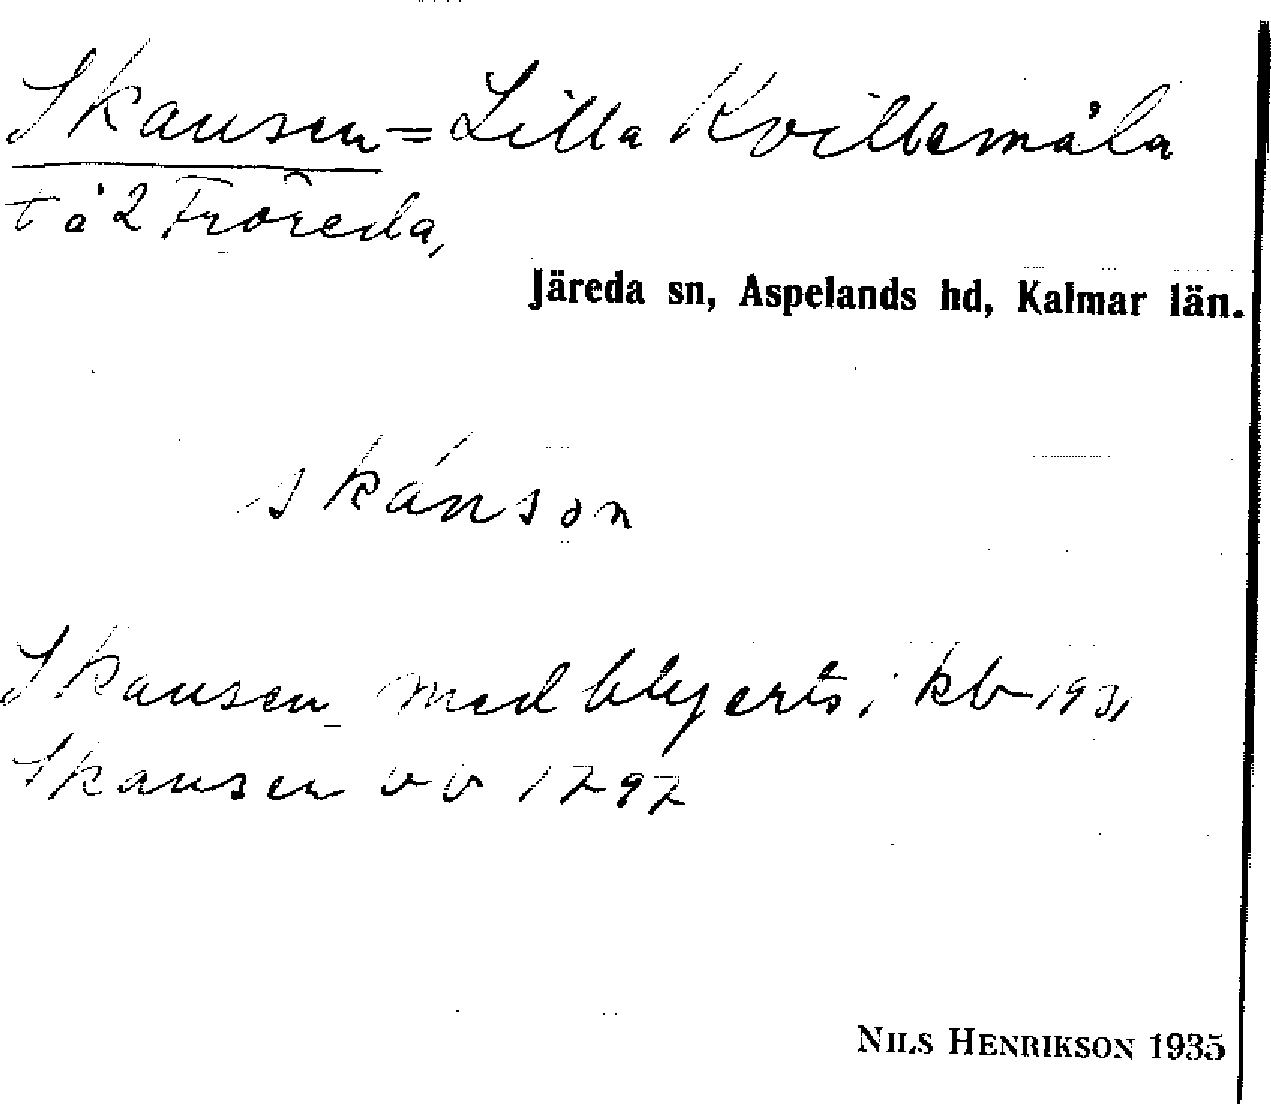 Skansen = Lilla Kvillemåla
t å 2 Fröreda,
Järeda sn, Aspelands hd, Kalmar län.
skánson
Skansen med blyerts i kb 1931
Skansen vv 1292
NILS HENRIKSON 1935